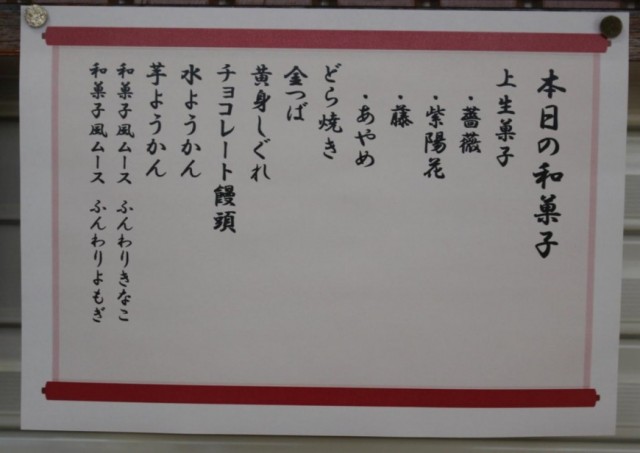 本日の和菓子
上生菓子
・薔薇
・紫陽花
・藤
・あやめ
どら焼き
金つば
黄身しぐれ
チョコレート饅頭
水ようかん
芋ようかん
和菓子風ムース ふんわりきなこ
和菓子風ムース ふんわりよもぎ